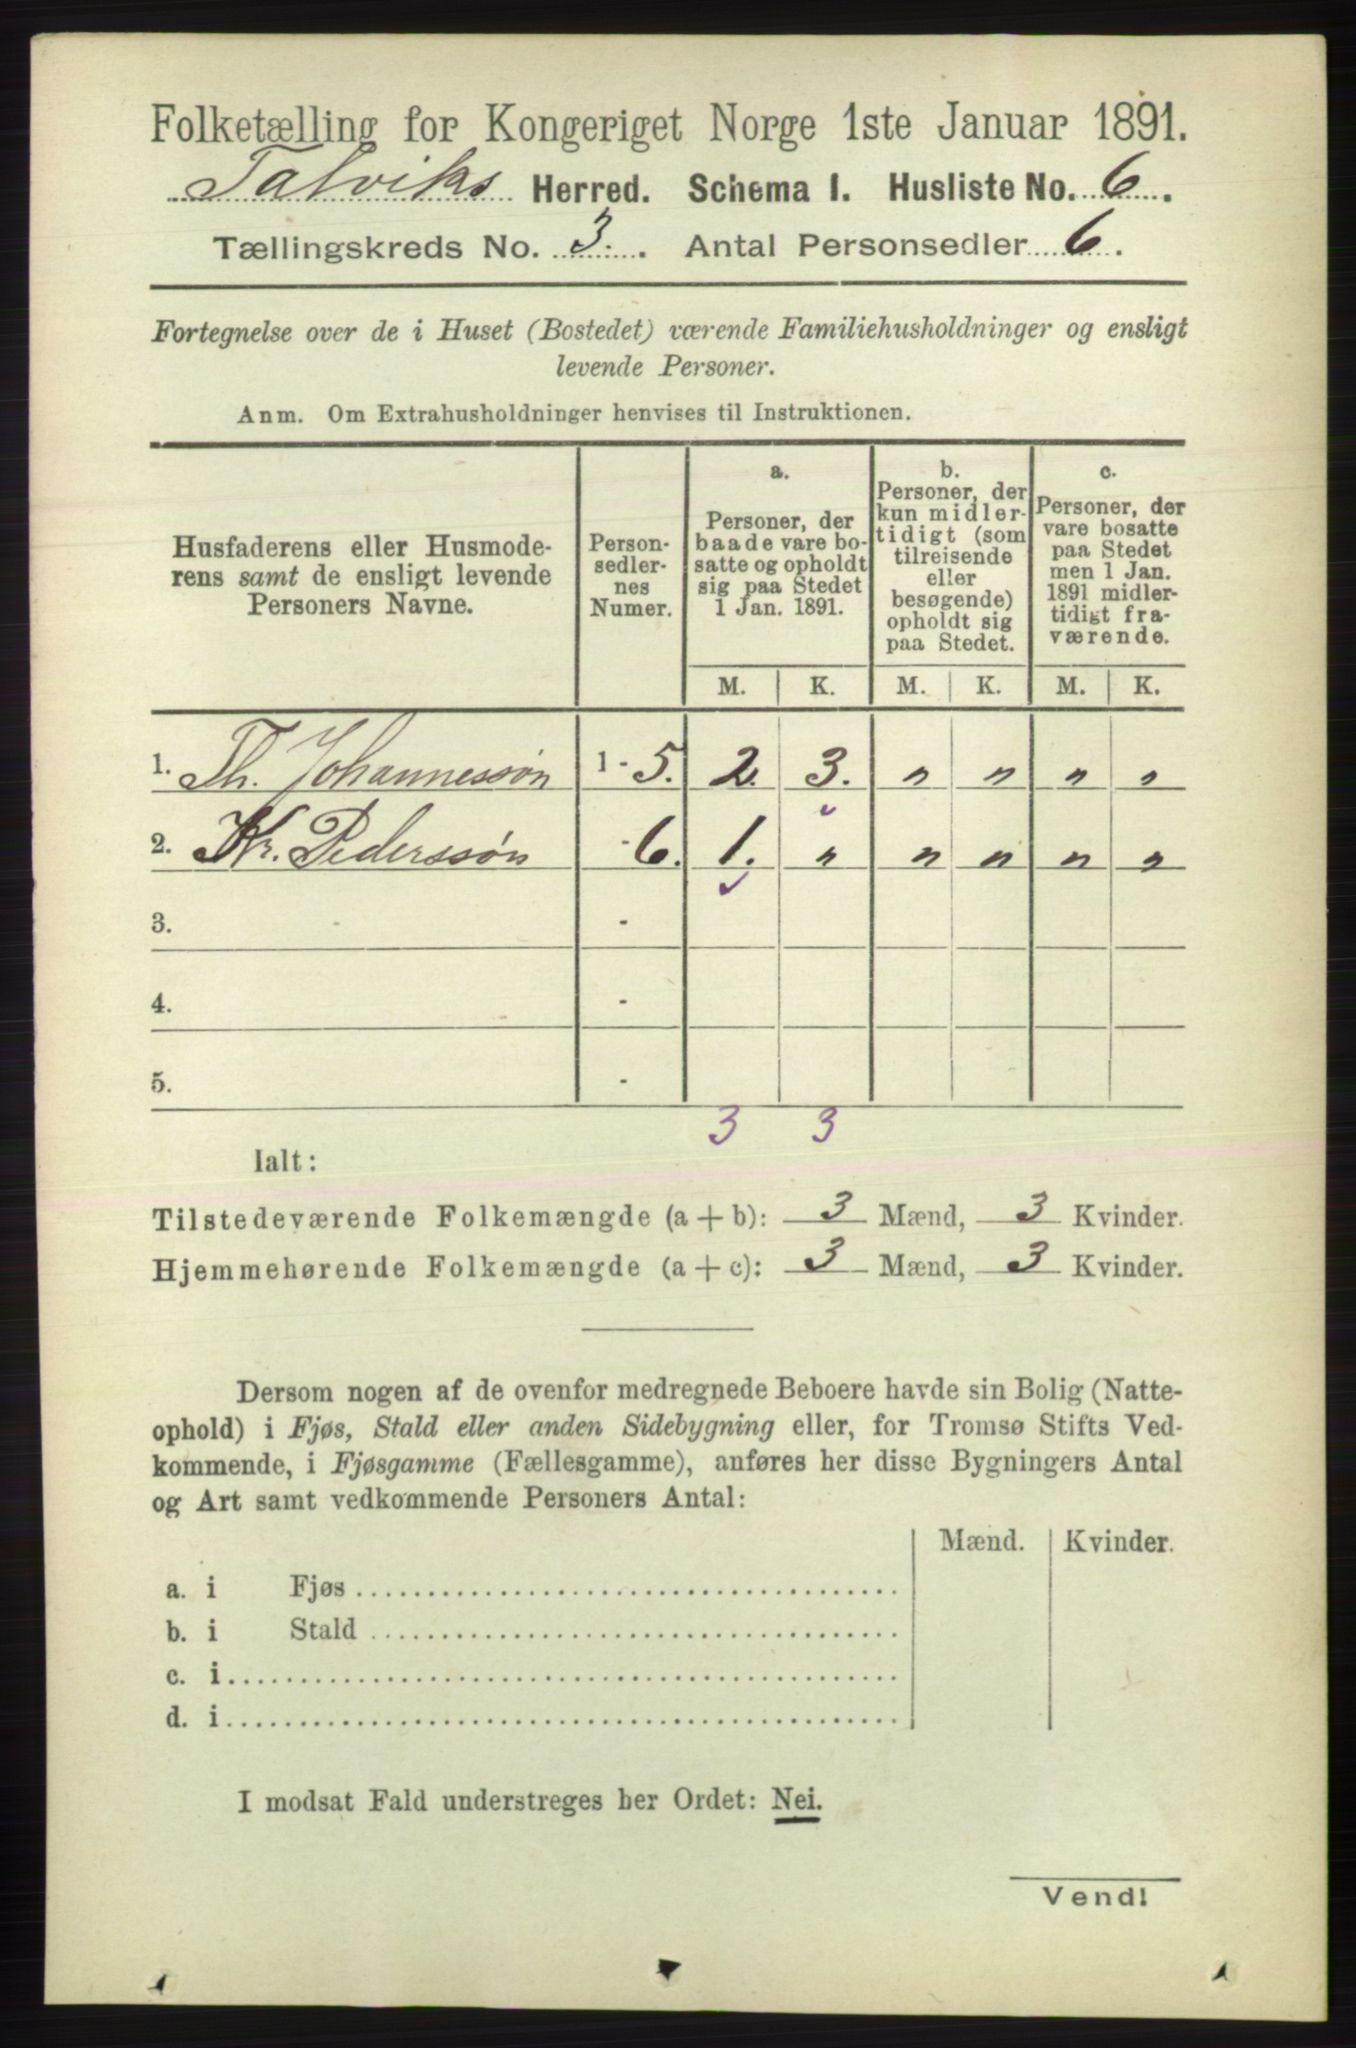 Folketælling for Kongeriget Norge 1ste Januar 1891.
Talviks Herred. Schema I. Husliste No. 6.
Tællingskreds No. 3. Antal Personsedler 6.
Fortegnelse over de i Huset (Bostedet) værende Familiehusholdninger og ensligt
levende Personer.
Anm. Om Extrahusholdninger henvises til Instruktionen.
Husfaderens eller Husmode-
rens samt de ensligt levende
Personers Navne.
Person-
sedler-
nes
Numer.
a.
Personer, der
baade vare bo-
satte og opholdt
sig paa Stedet
1 Jan. 1891.
b.
Personer, der
kun midler-
tidigt (som
tilreisende
eller
besøgende)
opholdt sig
paa Stedet.
c.
Personer, der
vare bosatte
paa Stedet
men 1 Jan.
1891 midler-
tidigt fra-
værende.
M. K. M. K. M. K.
1. Th. Johannessøn 1 - 5. 2. 3. " " " "
2. Kr. Pederssøn - 6. 1. " " " " "
3. -
4. -
5. -
3 3
Ialt:
Tilstedeværende Folkemængde (a + b): 3 Mænd, 3 Kvinder.
Hjemmehørende Folkemængde (a + c): 3 Mænd, 3 Kvinder.
Dersom nogen af de ovenfor medregnede Beboere havde sin Bolig (Natte-
ophold) i Fjøs, Stald eller anden Sidebygning eller, for Tromsø Stifts Ved-
kommende, i Fjøsgamme (Fællesgamme), anføres her disse Bygningers Antal
og Art samt vedkommende Personers Antal:
Mænd. Kvinder.
a. i Fjøs
b. i Stald
c. i
d. i
I modsat Fald understreges her Ordet: Nei.
Vend!